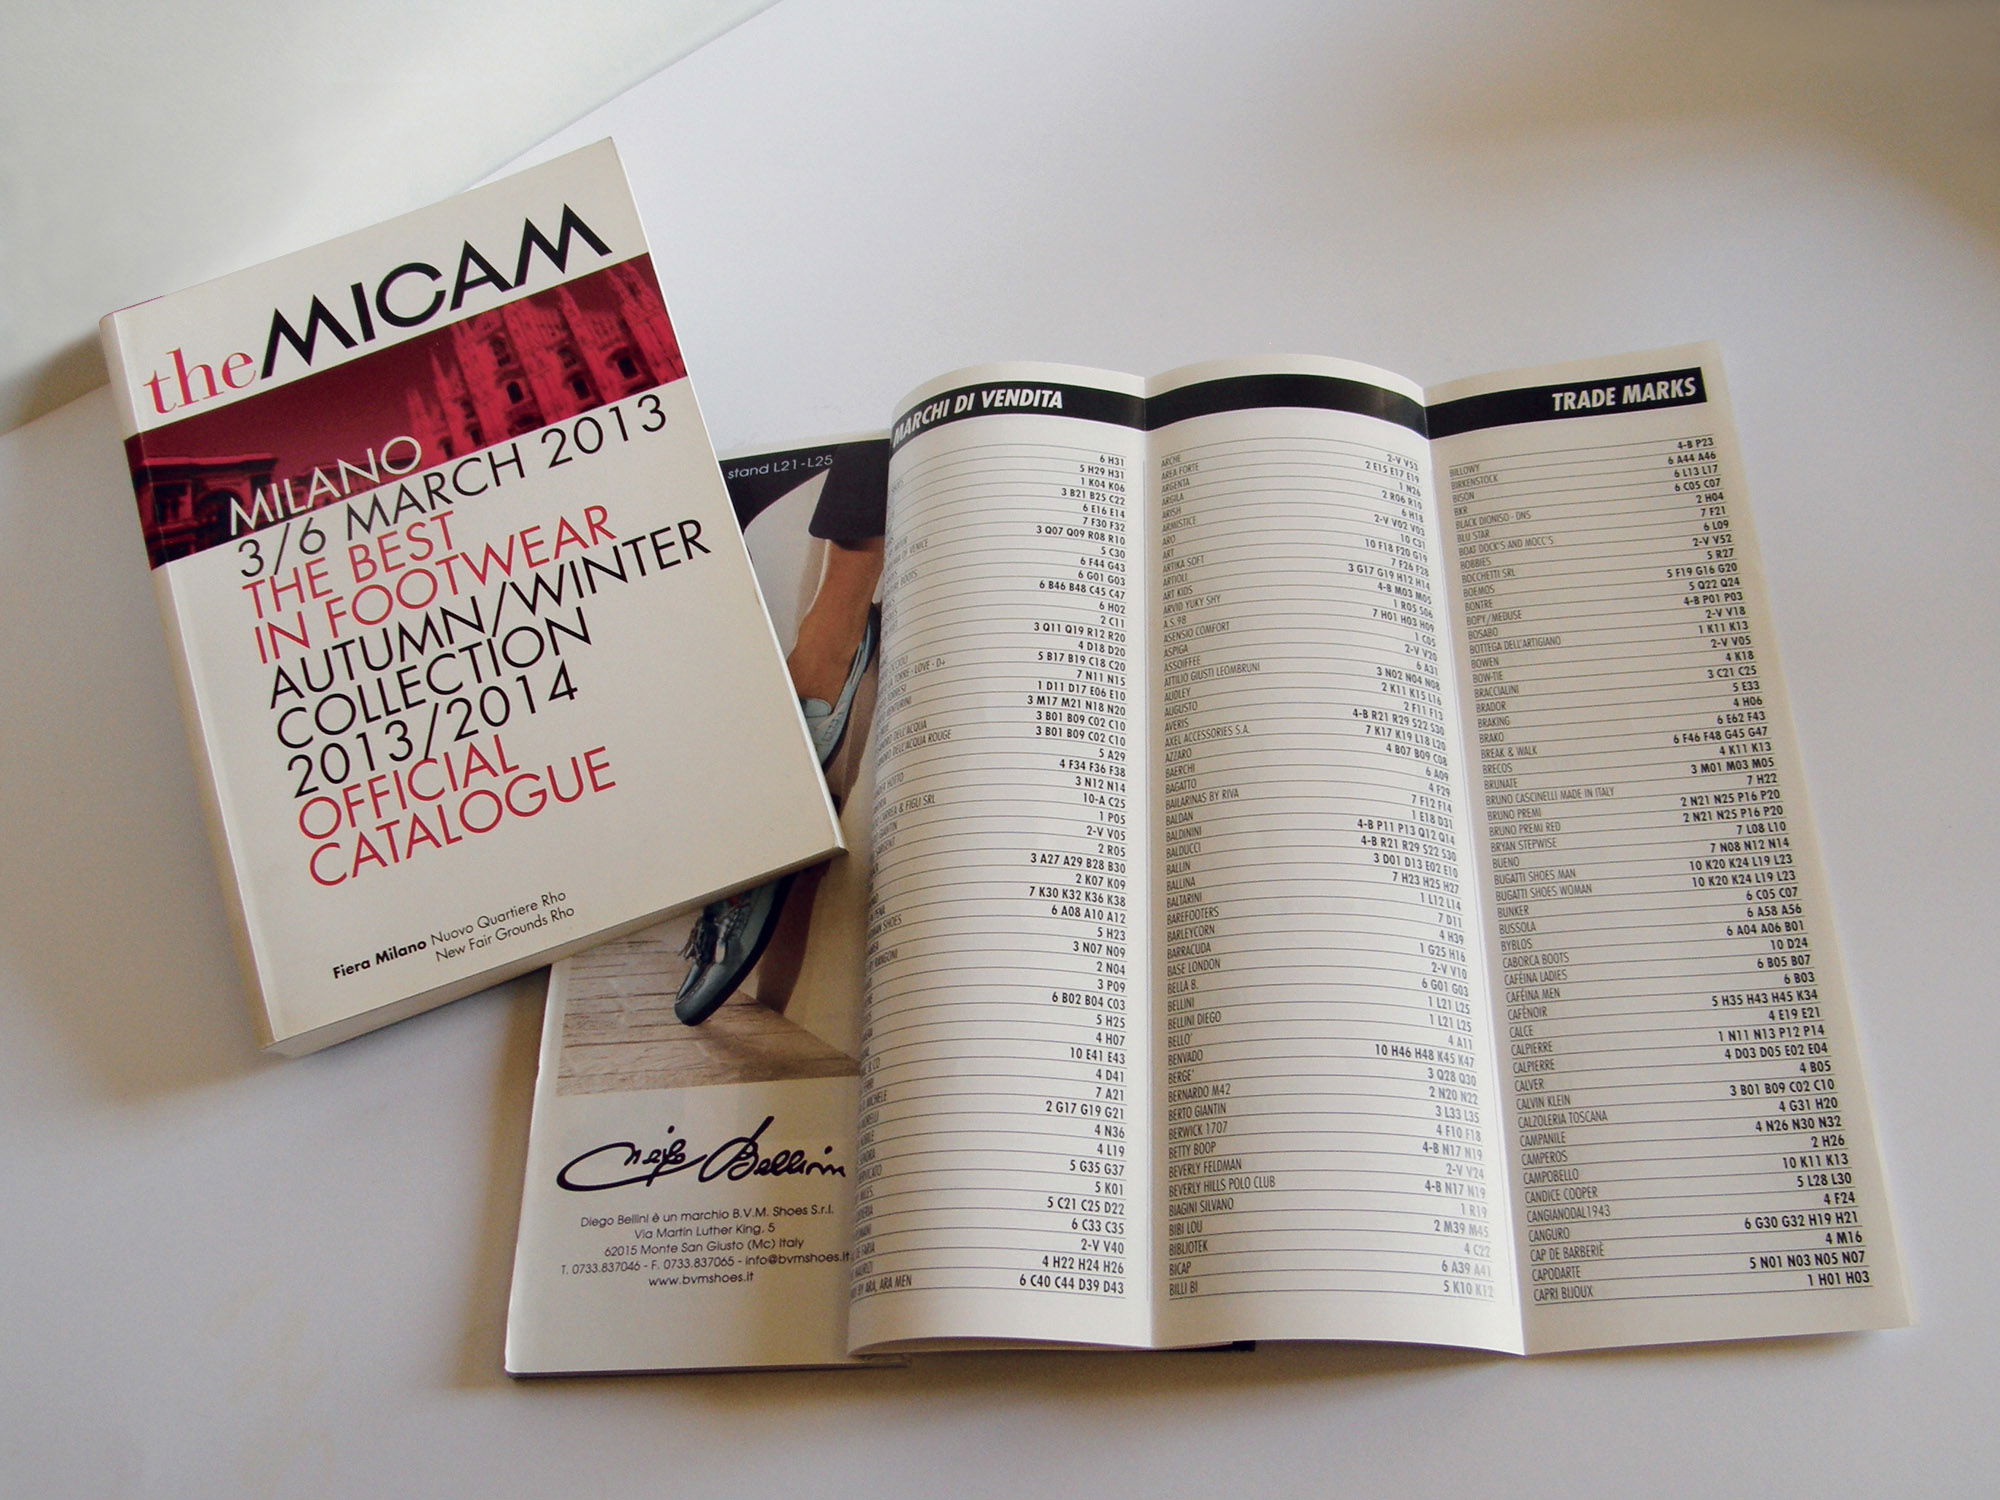 the MICAM
MILANO
3/6 MARCH 2013
THE BEST
IN FOOTWEAR
AUTUMN/WINTER
COLLECTION
2013/2014
OFFICIAL
CATALOGUE
Fiera Milano Nuovo Quartiere Rho
New Fair Grounds Rho
stand L21-L25
Diego Bellini è un marchio B.V.M. Shoes S.r.l.
Via Martin Luther King, 5
62015 Monte San Giusto (Mc) Italy
T. 0733.837046 - F. 0733.837065 - info@bvmshoes.it
www.bvmshoes.it
MARCHI DI VENDITA
6 H31
5 H29 H31
1 K04 K06
3 B21 B25 C22
6 E16 E14
7 F30 F32
3 Q07 Q09 R08 R10
5 C30
6 F44 G43
6 G01 G03
6 B46 B48 C45 C47
6 H02
2 C11
3 Q11 Q19 R12 R20
4 D18 D20
5 B17 B19 C18 C20
7 N11 N15
1 D11 D17 E06 E10
3 M17 M21 N18 N20
DELL'ACQUA 3 B01 B09 C02 C10
DELL'ACQUA ROUGE 3 B01 B09 C02 C10
5 A29
4 F34 F36 F38
3 N12 N14
& FIGLI SRL 10-A C25
1 P05
2-V V05
2 R05
3 A27 A29 B28 B30
2 K07 K09
7 K30 K32 K36 K38
SHOES 6 A08 A10 A12
5 H23
3 N07 N09
2 N04
3 P09
6 B02 B04 C03
5 H25
4 H07
10 E41 E43
4 D41
7 A21
2 G17 G19 G21
4 N36
4 L19
5 G35 G37
5 K01
5 C21 C25 D22
6 C33 C35
2-V V40
4 H22 H24 H26
BY ARA, ARA MEN 6 C40 C44 D39 D43
ARCHE 2-V V53
AREA FORTE 2 E15 E17 E19
ARGENTA 1 N26
ARGILA 2 R06 R10
ARISH 6 H18
ARMISTICE 2-V V02 V03
ARO 10 C31
ART 10 F18 F20 G19
ARTIKA SOFT 7 F26 F28
ARTIOLI 3 G17 G19 H12 H14
ART KIDS 4-B M03 M05
ARVID YUKY SHY 1 R05 S06
A.S.98 7 H01 H03 H09
ASENSIO COMFORT 1 C05
ASPIGA 2-V V20
ASSOIFFEE 6 A31
ATTILIO GIUSTI LEOMBRUNI 3 N02 N04 N08
AUDLEY 2 K11 K15 L16
AUGUSTO 2 F11 F13
AVERIS 4-B R21 R29 S22 S30
AXEL ACCESSORIES S.A. 7 K17 K19 L18 L20
AZZARO 4 B07 B09 C08
BAERCHI 6 A09
BAGATTO 4 F29
BAILARINAS BY RIVA 7 F12 F14
BALDAN 1 E18 D31
BALDININI 4-B P11 P13 Q12 Q14
BALDUCCI 4-B R21 R29 S22 S30
BALLIN 3 D01 D13 E02 E10
BALLINA 7 H23 H25 H27
BALTARINI 1 L12 L14
BAREFOOTERS 7 D11
BARLEYCORN 4 H39
BARRACUDA 1 G25 H16
BASE LONDON 2-V V10
BELLA B. 6 G01 G03
BELLINI 1 L21 L25
BELLINI DIEGO 1 L21 L25
BELLO' 4 A11
BENVADO 10 H46 H48 K45 K47
BERGE' 3 Q28 Q30
BERNARDO M42 2 N20 N22
BERTO GIANTIN 3 L33 L35
BERWICK 1707 4 F10 F18
BETTY BOOP 4-B N17 N19
BEVERLY FELDMAN 2-V V24
BEVERLY HILLS POLO CLUB 4-B N17 N19
BIAGINI SILVANO 1 R19
BIBI LOU 2 M39 M45
BIBLIOTEK 4 C22
BICAP 6 A39 A41
BILLI BI 5 K10 K12
TRADE MARKS
BILLOWY 4-B P23
BIRKENSTOCK 6 A44 A46
BISON 6 L13 L17
BKR 6 C05 C07
BLACK DIONISO - DNS 2 H04
BLU STAR 7 F21
BOAT DOCK'S AND MOCC'S 6 L09
BOBBIES 2-V V52
BOCCHETTI SRL 5 R27
BOEMOS 5 F19 G16 G20
BONTRE 5 Q22 Q24
BOPY/MEDUSE 4-B P01 P03
BOSABO 2-V V18
BOTTEGA DELL'ARTIGIANO 1 K11 K13
BOWEN 2-V V05
BOW-TIE 4 K18
BRACCIALINI 3 C21 C25
BRADOR 5 E33
BRAKING 4 H06
BRAKO 6 E62 F43
BREAK & WALK 6 F46 F48 G45 G47
BRECOS 4 K11 K13
BRUNATE 3 M01 M03 M05
BRUNO CASCINELLI MADE IN ITALY 7 H22
BRUNO PREMI 2 N21 N25 P16 P20
BRUNO PREMI RED 2 N21 N25 P16 P20
BRYAN STEPWISE 7 L08 L10
BUENO 7 N08 N12 N14
BUGATTI SHOES MAN 10 K20 K24 L19 L23
BUGATTI SHOES WOMAN 10 K20 K24 L19 L23
BUNKER 6 C05 C07
BUSSOLA 6 A58 A56
BYBLOS 6 A04 A06 B01
CABORCA BOOTS 10 D24
CAFÉINA LADIES 6 B05 B07
CAFÉINA MEN 6 B03
CAFÈNOIR 5 H35 H43 H45 K34
CALCE 4 E19 E21
CALPIERRE 1 N11 N13 P12 P14
CALPIERRE 4 D03 D05 E02 E04
CALVER 4 B05
CALVIN KLEIN 3 B01 B09 C02 C10
CALZOLERIA TOSCANA 4 G31 H20
CAMPANILE 4 N26 N30 N32
CAMPEROS 2 H26
CAMPOBELLO 10 K11 K13
CANDICE COOPER 5 L28 L30
CANGIANODAL1943 4 F24
CANGURO 6 G30 G32 H19 H21
CAP DE BARBERIÈ 4 M16
CAPODARTE 5 N01 N03 N05 N07
CAPRI BIJOUX 1 H01 H03